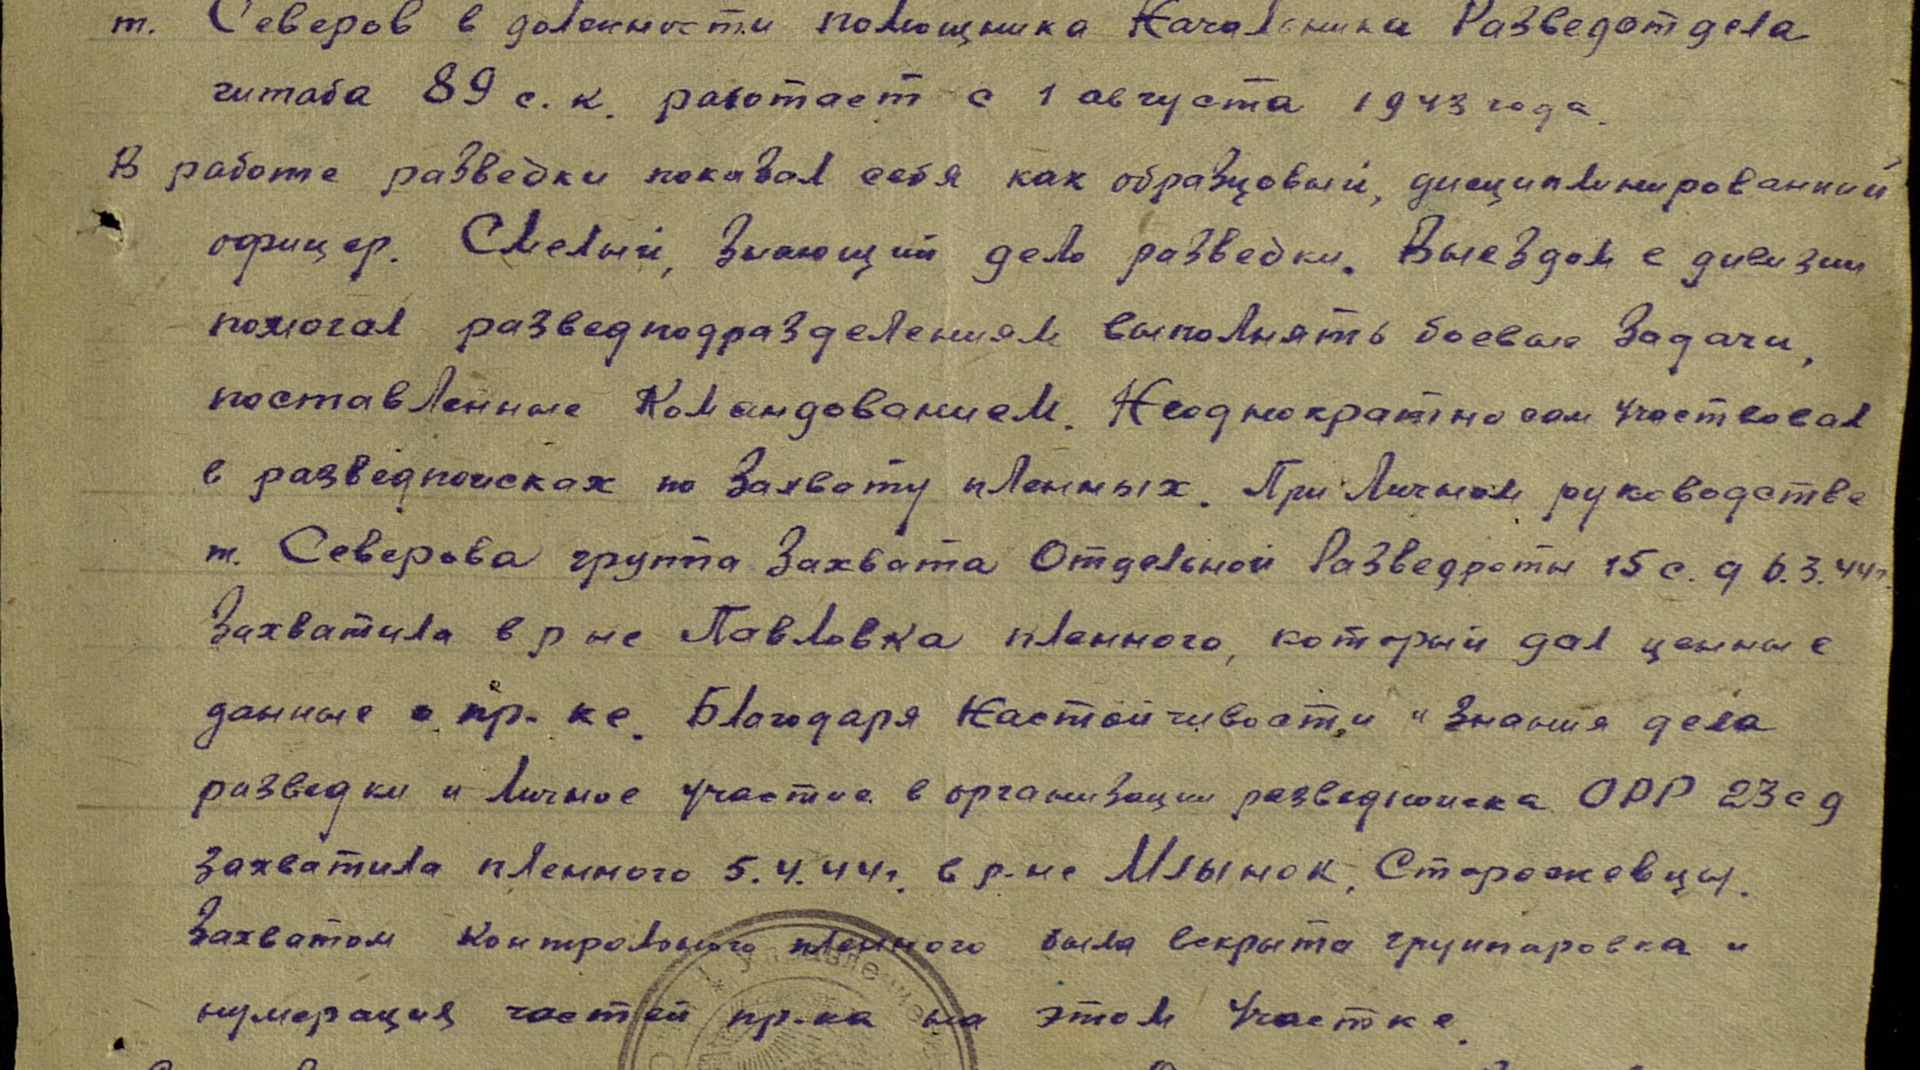 т. Северов в должности помощника Начальника Разведотдела
штаба 89 с. к. работает с 1 августа 1943 года.
В работе разведки показал себя как образцовый, дисциплинированний
офицер. Смелый, знающий дело разведки. Выездом в дивизии
помогал разведподразделениям выполнять боевые задачи,
поставленные Командованием. Неоднократно сам участвовал
в разведпоисках по захвату пленных. При личном руководстве
т. Северова группа захвата Отдельной Разведроты 15 с. д 6.3.44г.
Захватила в р не Павловка пленного, который дал ценные
данные о пр-ке. Благодаря Настойчивости и знания дела
разведки и личное участие в организации разведпоиска ОРР 23 с д
захватила пленного 5.4.44г. в р-не Млынок, Сторожевцы.
Захватом контрольного пленного была вскрыта группировка и
нумерация частей пр-ка на этом участке.